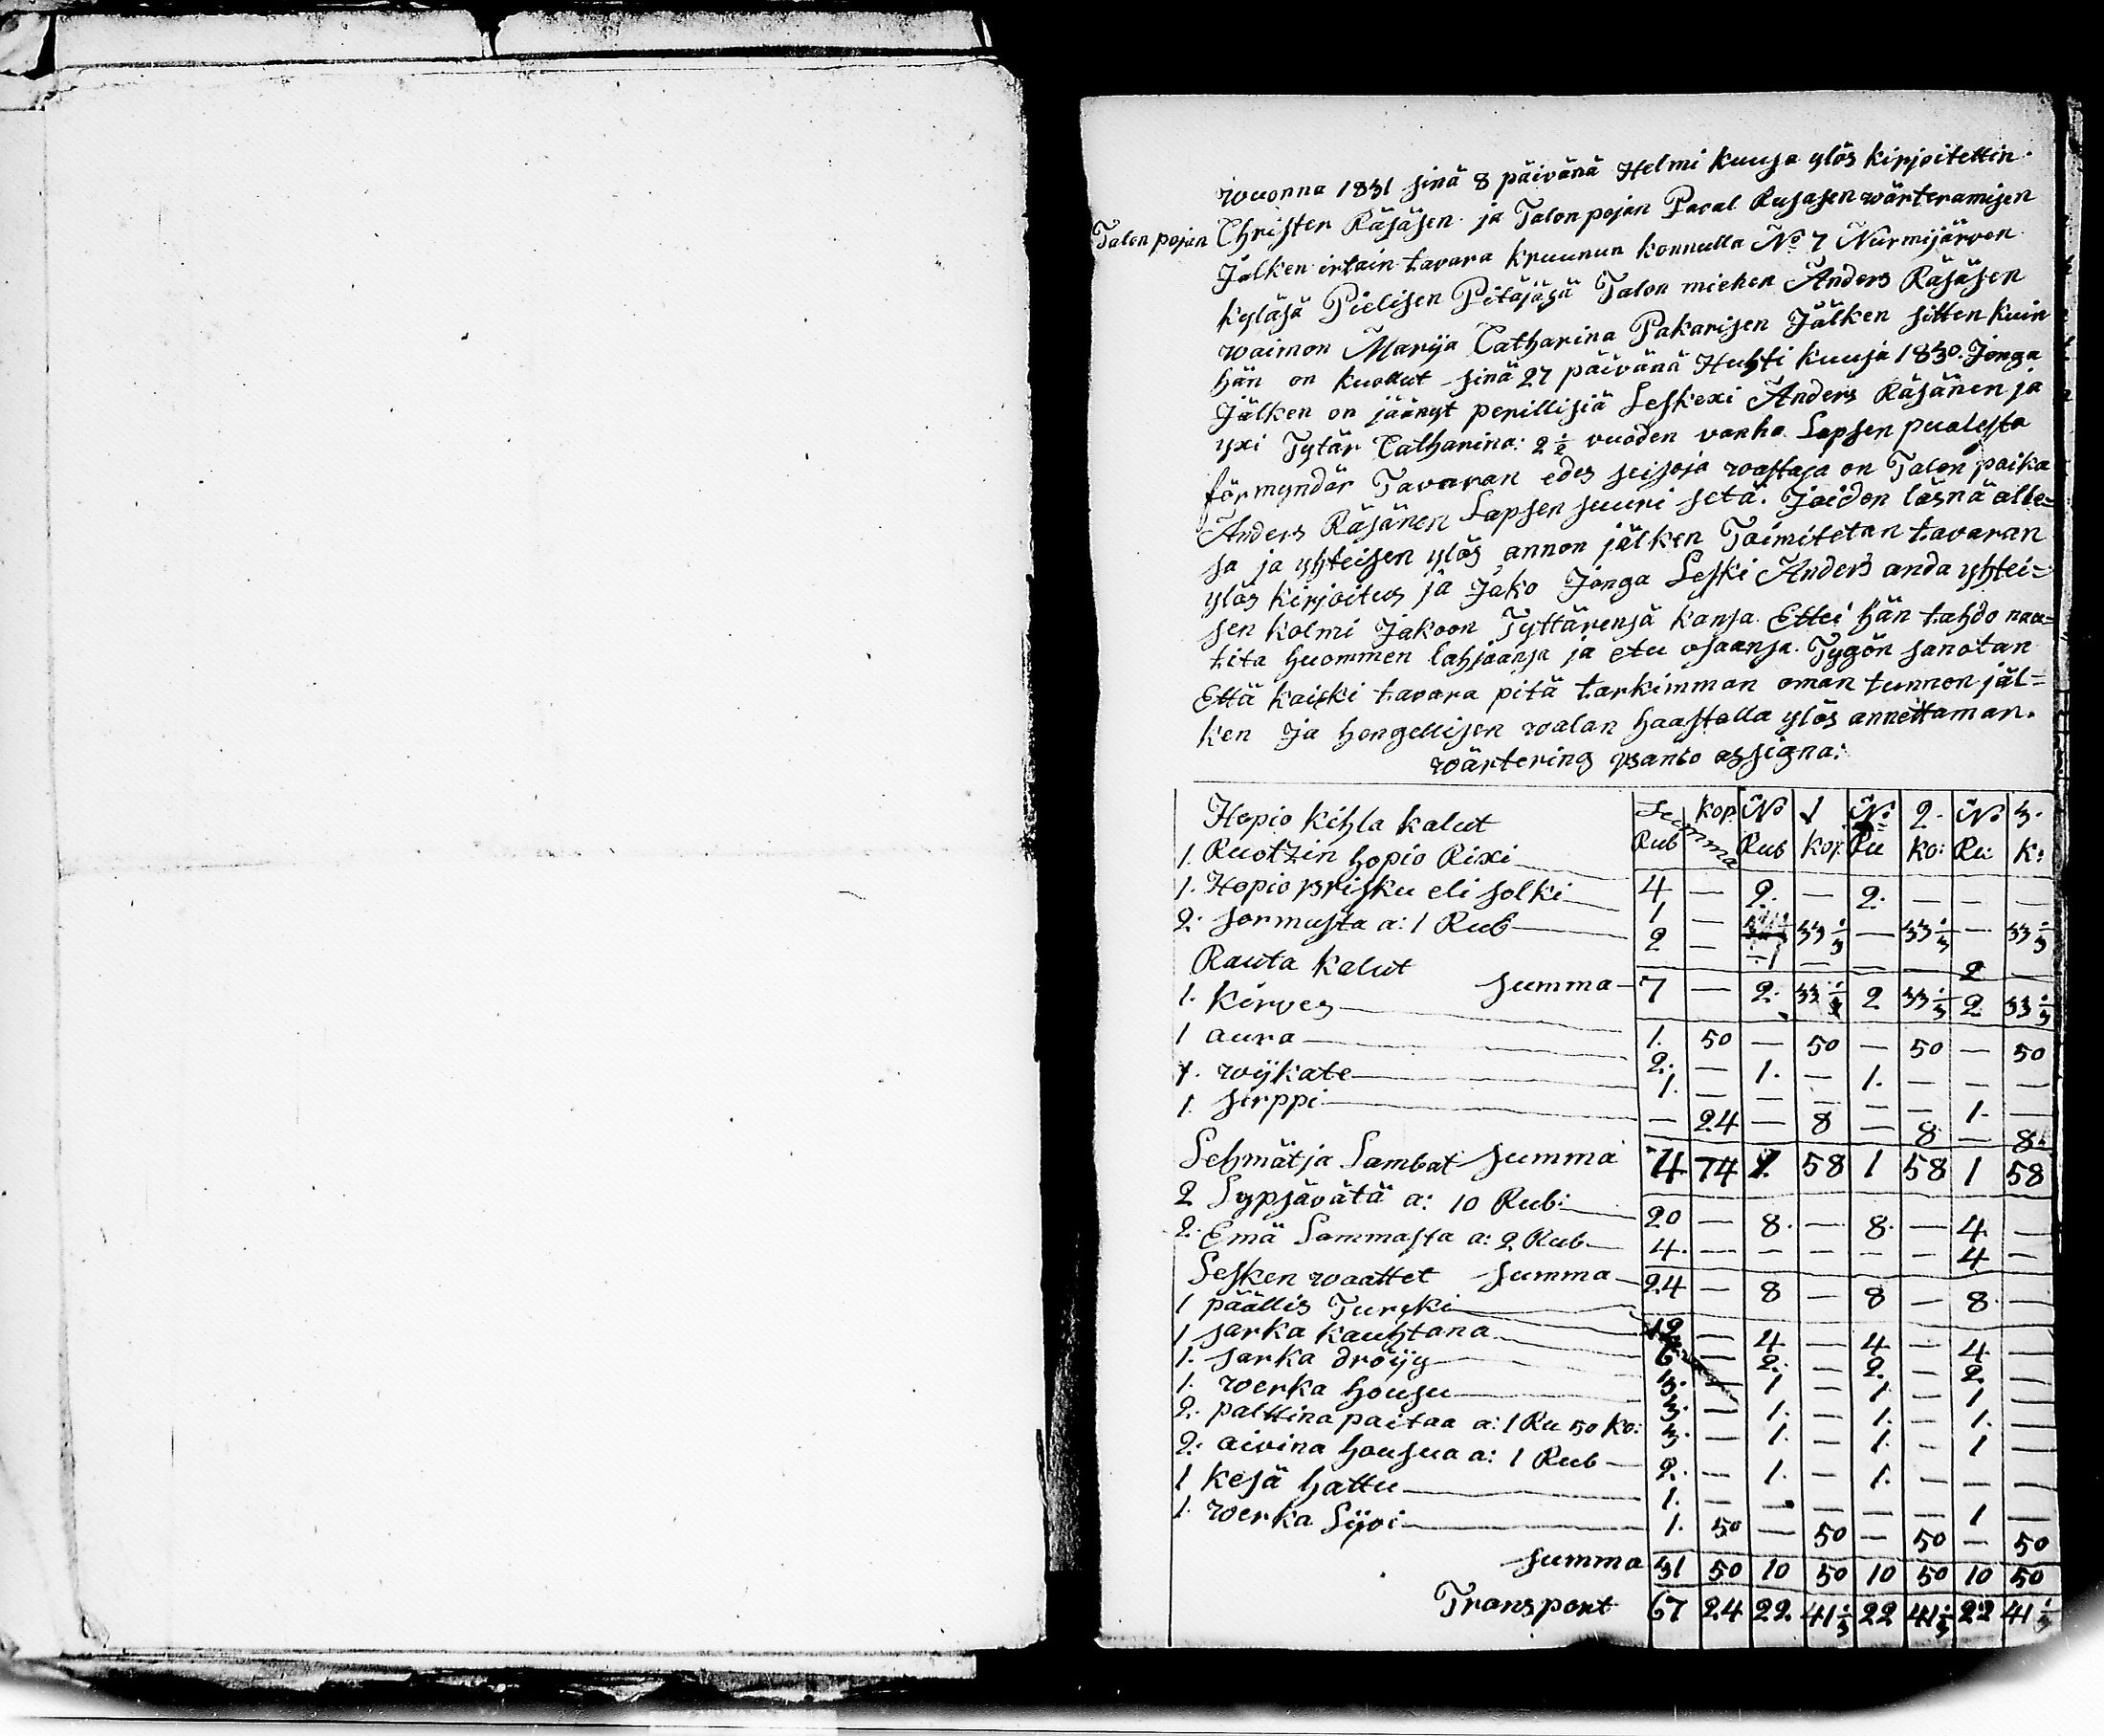 wuonna 1831 sinä 8 päivänä Helmi kuusa ylös kirjoitettin
Talon pojan Christer Räsäsen ja Talon pojan Paval Rusasen wärteramisen
Jälken irtain tavara kruunun konnulla No 7 Nurmijärven
kyläsä Pielisen Pitäjäsä Talon miehen Anders Räsäsen
waimon Marija Catharina Pakarisen Jälken sitten kuin
hän on kuollut sinä 27 päivänä Huhti kuusa 1830. Jonga
Jälken on jäänyt perillisiä Leskexi Anders Räsänen ja
yxi Tytär Catharina: 2 1/2 vuoden vanha Lapsen puolesta
förmyndär Tavaran edes seisoja wastaja on Talon poika
Anders Räsänen Lapsen suuri setä. Joiden läsnä olle=
sa ja yhteisen ylös annon jälken Toimitetan tavaran
ylös kirjoitus ja Jako Jonga Leski Anders anda yhtei=
sen kolmi Jakoon Tyttärensä kansa. Ettei hän tahdo nau=
tita huommen lahjaansa ja etu osaansa. Tygön sanotan
Että kaiki tavara pitä tarkimman oman tunnon jäl=
ken Ja hengellisen walan haastolla ylös annettaman.
wärtering banko assigna:
Hopio kihla kalut Summa Rub kop No 1 Rub kop. No 2. Ru ko: No 3. Ru: k:
1. Ruotzin hopio Rixi 4 — 2. — 2. — — —
1. Hopio prisku eli solki 1 — 33 1/3 — 33 1/3 — 33 1/3
2. sormusta a: 1 Rub 2 — — — — 2 —
Rauta kalut Summa 7 — 2. 33 1/3 2 33 1/3 2 33 1/3
1. kirves 1. 50 — 50 — 50 — 50
1 aura 2. — 1. — 1. — — —
1. wijkate 1. — — — — — 1. —
1. sirppi — 24 — 8 — 8 — 8
Lehmät ja Lambat Summa 4 74 1 58 1 58 1 58
2 Lypsävätä a: 10 Rub: 20 — 8. — 8. — 4. —
2. Emä Lammasta a: 2 Rub 4. — — — — — 4 —
Lesken waattet Summa 24 — 8 — 8 — 8. —
1 päällis Turcki 12 — 4 — 4 — 4 —
1 sarka kauhtana 6 — 2. — 2. — 2. —
1. sarka dröijy 3. — 1 — 1 — 1 —
1. werka housu 3. — 1. — 1. — 1. —
2. palttina paitaa a: 1 Ru 50 ko: 3. — 1. — 1. — 1 —
2. aivina housua a: 1 Rub 2. — 1. — 1. — — —
1 kesä hattu 1. — — — — — 1 —
1. werka Lijvi 1. 50 — 50 — 50 — 50
Summa 31 50 10 50 10 50 10 50
Transport 67 24 22. 41 1/3 22 41 1/3 22 41 1/3